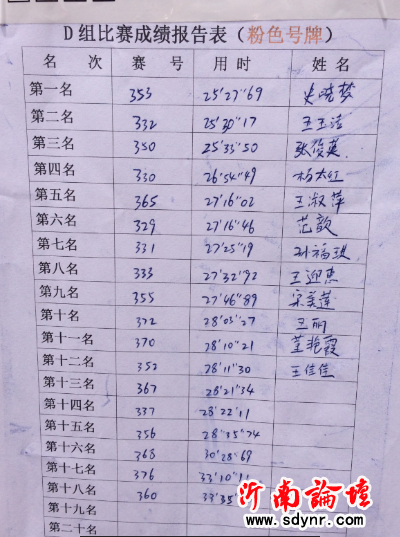 D组比赛成绩报告表（粉色号牌）
名 次 赛 号 用 时 姓 名
第一名 353 25'27"69 史晓梦
第二名 332 25'30"17 王玉洁
第三名 350 25'33"50 张俊英
第四名 330 26'54"49 杨太红
第五名 365 27'16"02 王淑萍
第六名 329 27'16"46 范歆
第七名 331 27'25"19 孙福琪
第八名 333 27'32"92 王迎惠
第九名 355 27'46"89 宋美莲
第十名 372 28'05"27 王丽
第十一名 370 28'10"21 董艳霞
第十二名 352 28'11"30 王佳佳
第十三名 367 28'21"34
第十四名 337 28'22"11
第十五名 356 28'35"74
第十六名 368 30'28"69
第十七名 376 33'10"11
第十八名 360 33'35
第十九名
第二十名
沂南論壇
www.sdynr.com